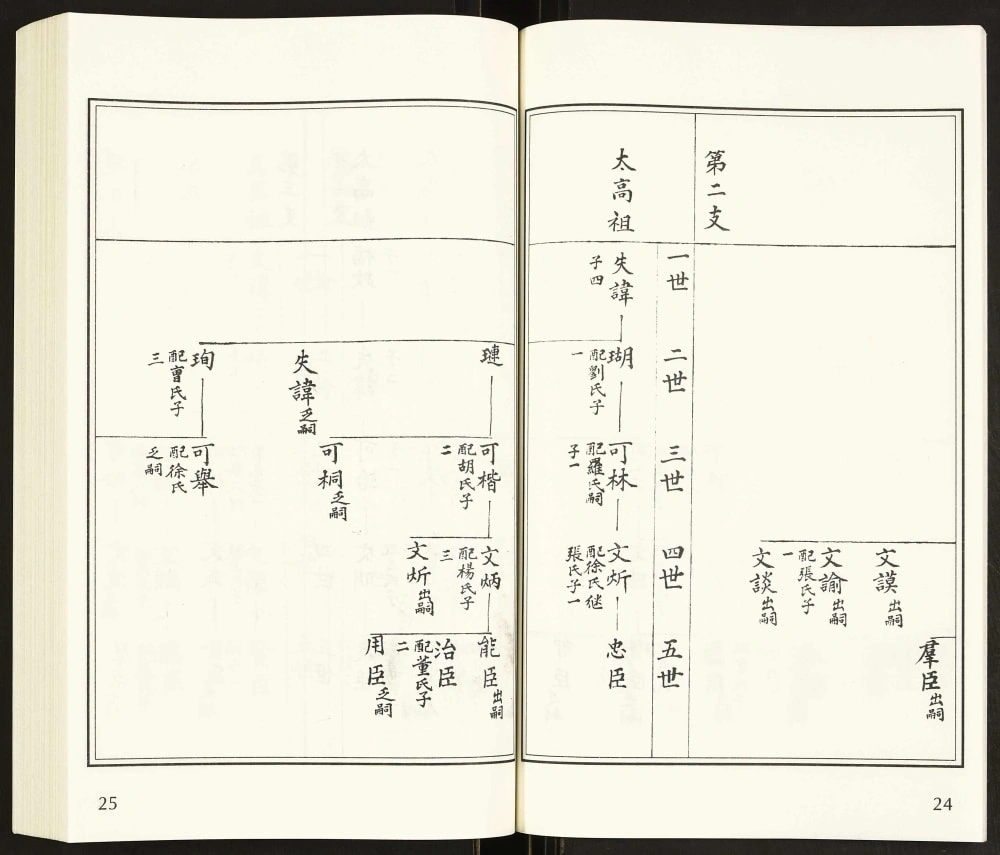 羣臣出嗣
文謨出嗣
文諭出嗣
配張氏子
一
文談出嗣
第二支
一世
二世
三世
四世
五世
太高祖
失諱
子四
瑚
配劉氏子
一
可林
配羅氏嗣
子一
文炘
配徐氏继
張氏子一
忠臣
璉
可楷
配胡氏子
二
文炳
配楊氏子
三
能臣出嗣
治臣
配董氏子
二
用臣乏嗣
文炘出嗣
可桐乏嗣
失諱乏嗣
珣
配曺氏子
三
可舉
配徐氏
乏嗣
24
25